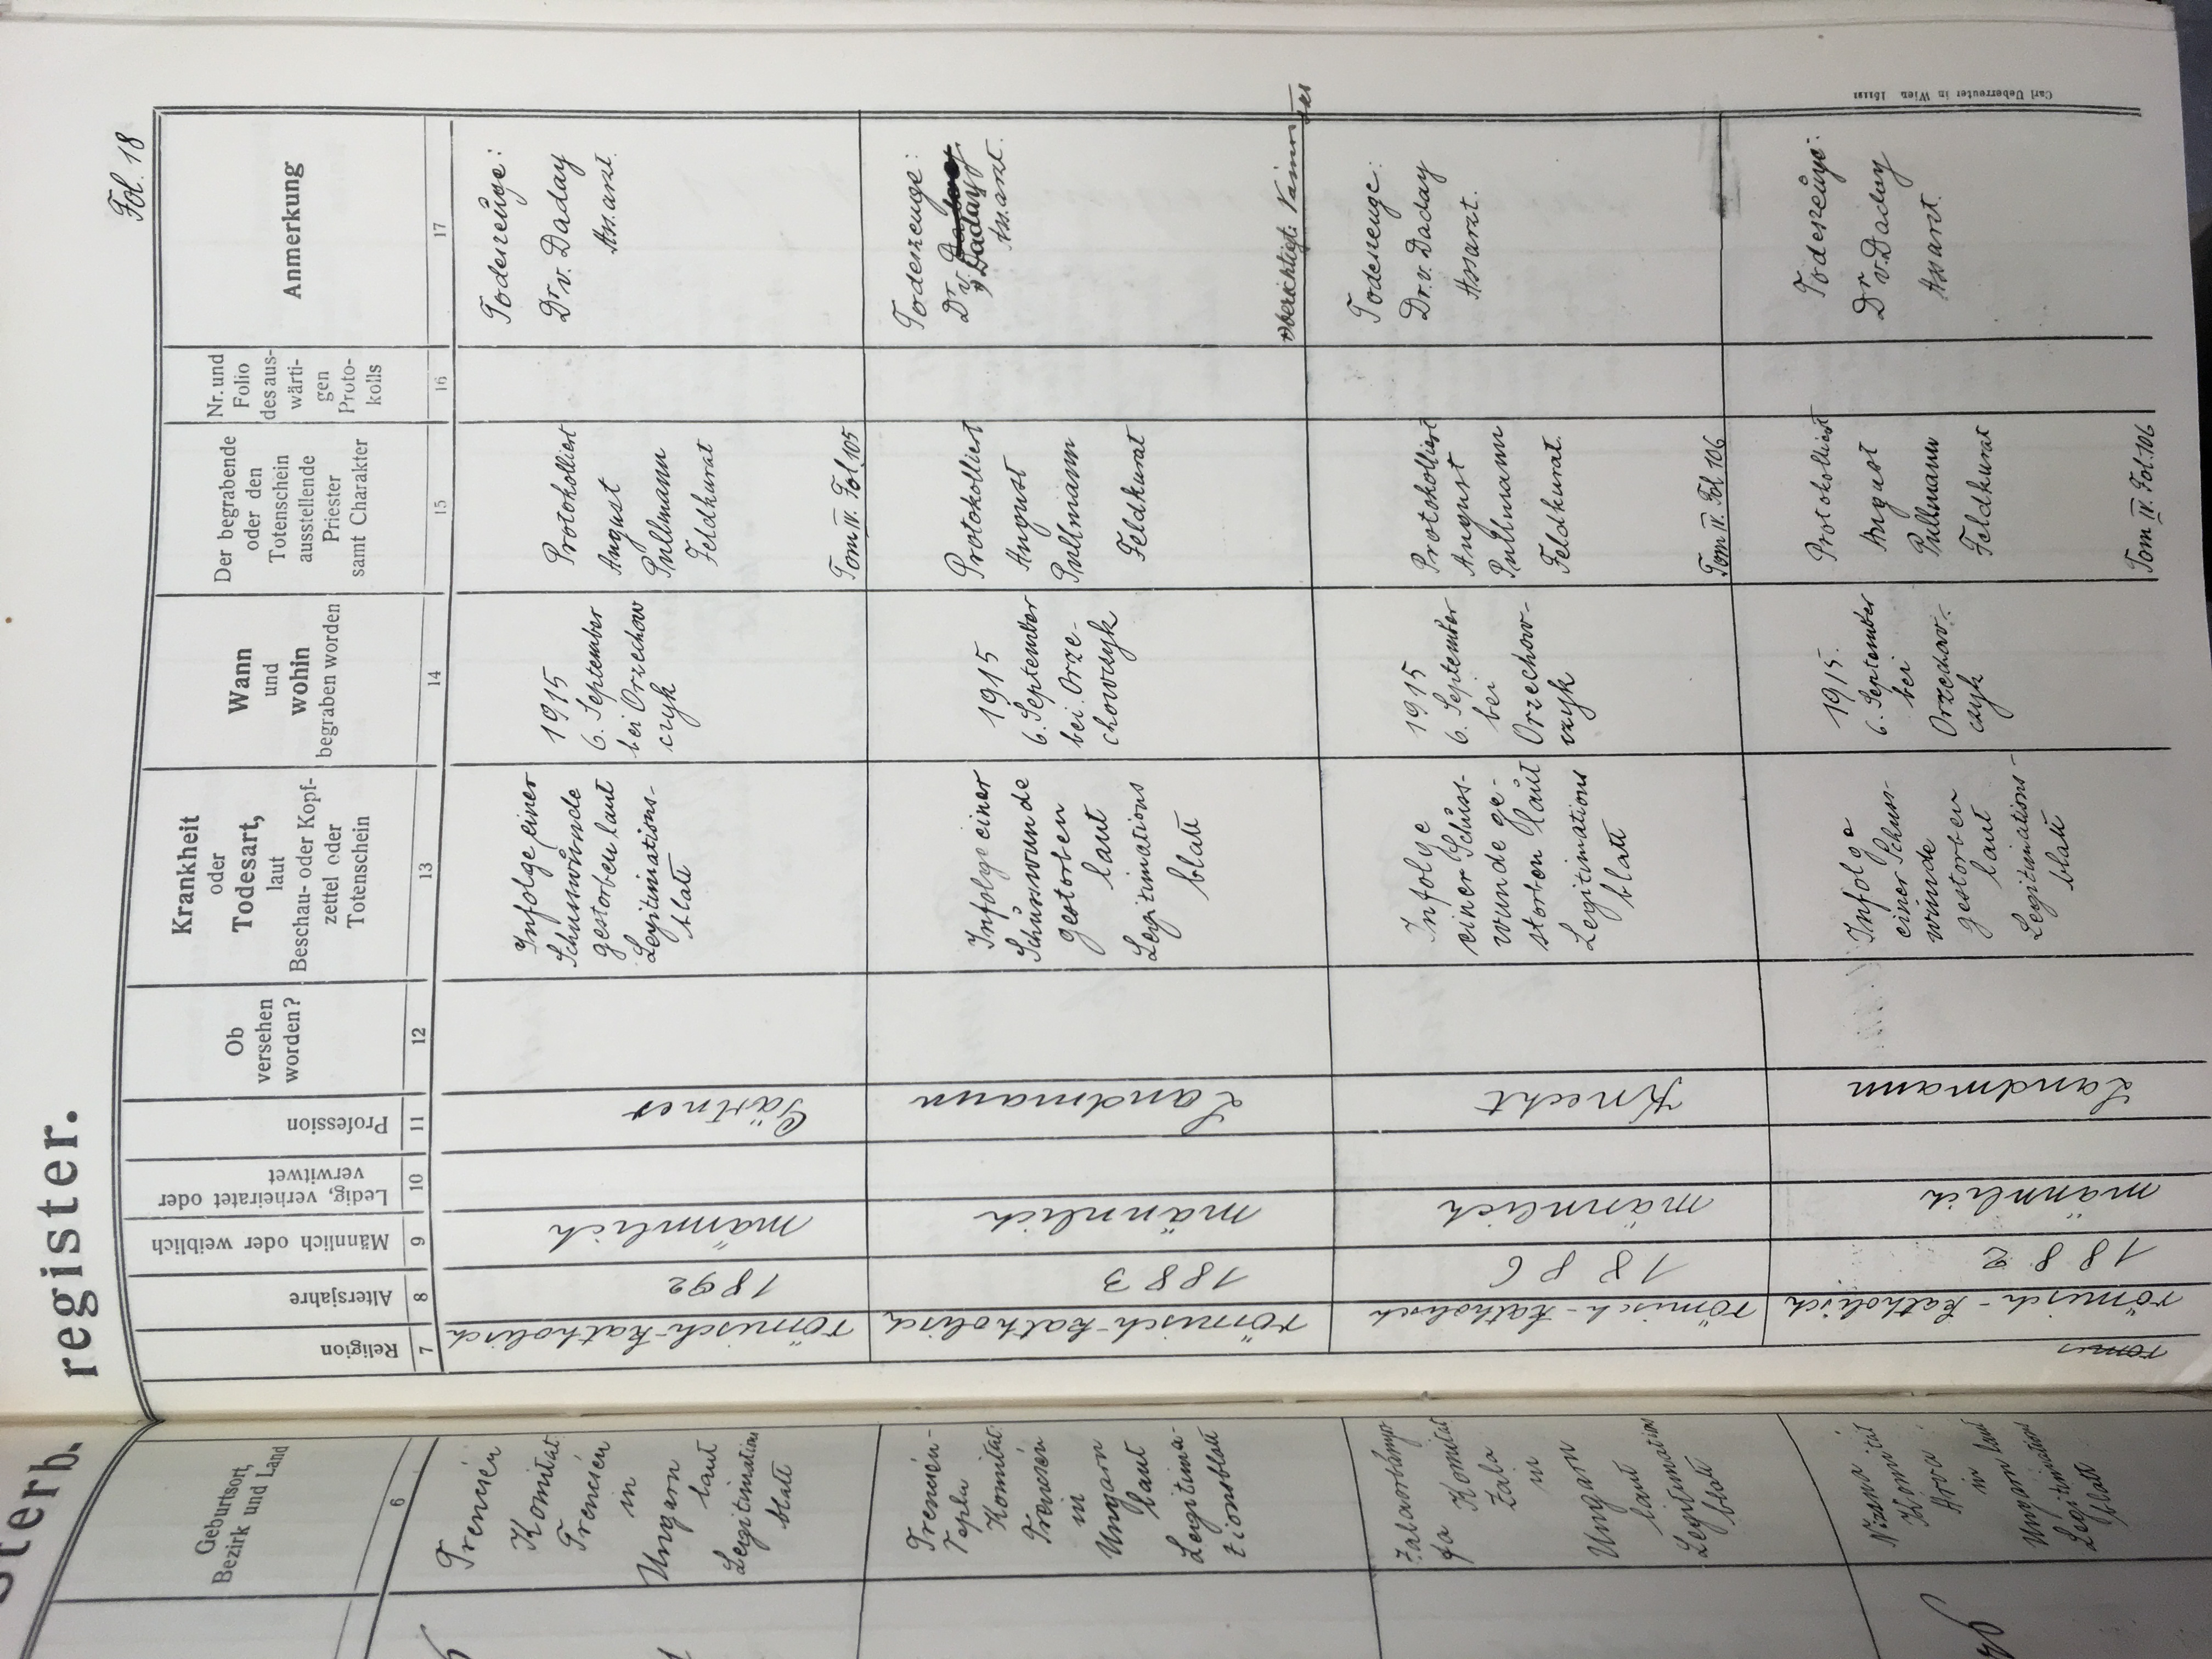 Sterb-
register.
Fol. 18
Geburtsort,
Bezirk und Land
Religion
Altersjahre
Männlich oder weiblich
Ledig, verheiratet oder
verwitwet
Profession
Ob
versehen
worden?
Krankheit
oder
Todesart,
laut
Beschau- oder Kopf-
zettel oder
Totenschein
Wann
und
wohin
begraben worden
Der begrabende
oder den
Totenschein
ausstellende
Priester
samt Charakter
Nr. und
Folio
des aus-
wärti-
gen
Proto-
kolls
Anmerkung
6
7
8
9
10
11
12
13
14
15
16
17
Trencsén
Komitat
Trencsén
in
Ungarn
laut
Legitimations
blatt
römisch-katholisch
1892
männlich
Gärtner
Infolge einer
Schusswunde
gestorben laut
Legitimations-
blatt
1915
6. September
bei Orzechow
czyk
Protokolliert
August
Pullmann
Feldkurat
Tom IV. Fol. 105
Todeszeuge:
Dr. v. Daday
Ass. arzt.
Trencsén-
Teplu
Komitat
Trencsén
in
Ungarn
laut
Legitima-
tionsblatt
römisch-katholisch
1883
männlich
Landmann
Infolge einer
Schusswunde
gestorben
laut
Legitimations
blatt
1915
6. September
bei Orze-
chowczyk
Protokolliert
August
Pullmann
Feldkurat
Todeszeuge:
Dr. v.
v. Daday
Ass. arzt.
Komitat
Zala
in
Ungarn
laut
Legitimations
blatt
römisch-katholisch
1886
männlich
Knecht
Infolge
einer Schuss-
wunde ge-
storben laut
Legitimations
blatt
1915
6. September
bei
Orzechow-
czyk
Protokolliert
August
Pullmann
Feldkurat.
Tom IV. Fol. 106
Todeszeuge:
Dr. v. Daday
Ass arzt.
Komitat
Arva
in
Ungarn laut
Legitimations
blatt
römisch-katholisch
1882
männlich
Landmann
Infolge
einer Schuss-
wunde
gestorben
laut
Legitimations-
blatt
1915.
6. September
bei
Orzechow-
czyk
Protokolliert
August
Pullmann
Feldkurat
Tom IV. Fol. 106
Todeszeuge:
Dr. v. Daday
Ass arzt.
Carl Ueberreuter in Wien